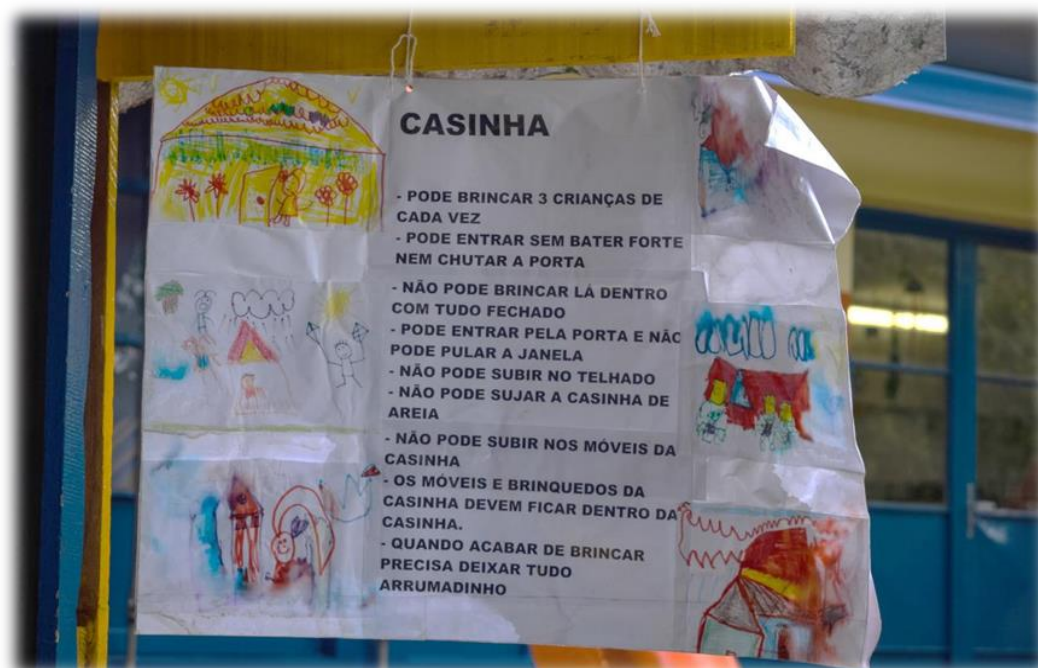 CASINHA
- PODE BRINCAR 3 CRIANÇAS DE
CADA VEZ
- PODE ENTRAR SEM BATER FORTE
NEM CHUTAR A PORTA
- NÃO PODE BRINCAR LÁ DENTRO
COM TUDO FECHADO
- PODE ENTRAR PELA PORTA E NÃO
PODE PULAR A JANELA
- NÃO PODE SUBIR NO TELHADO
- NÃO PODE SUJAR A CASINHA DE
AREIA
- NÃO PODE SUBIR NOS MÓVEIS DA
CASINHA
- OS MÓVEIS E BRINQUEDOS DA
CASINHA DEVEM FICAR DENTRO DA
CASINHA.
- QUANDO ACABAR DE BRINCAR
PRECISA DEIXAR TUDO
ARRUMADINHO